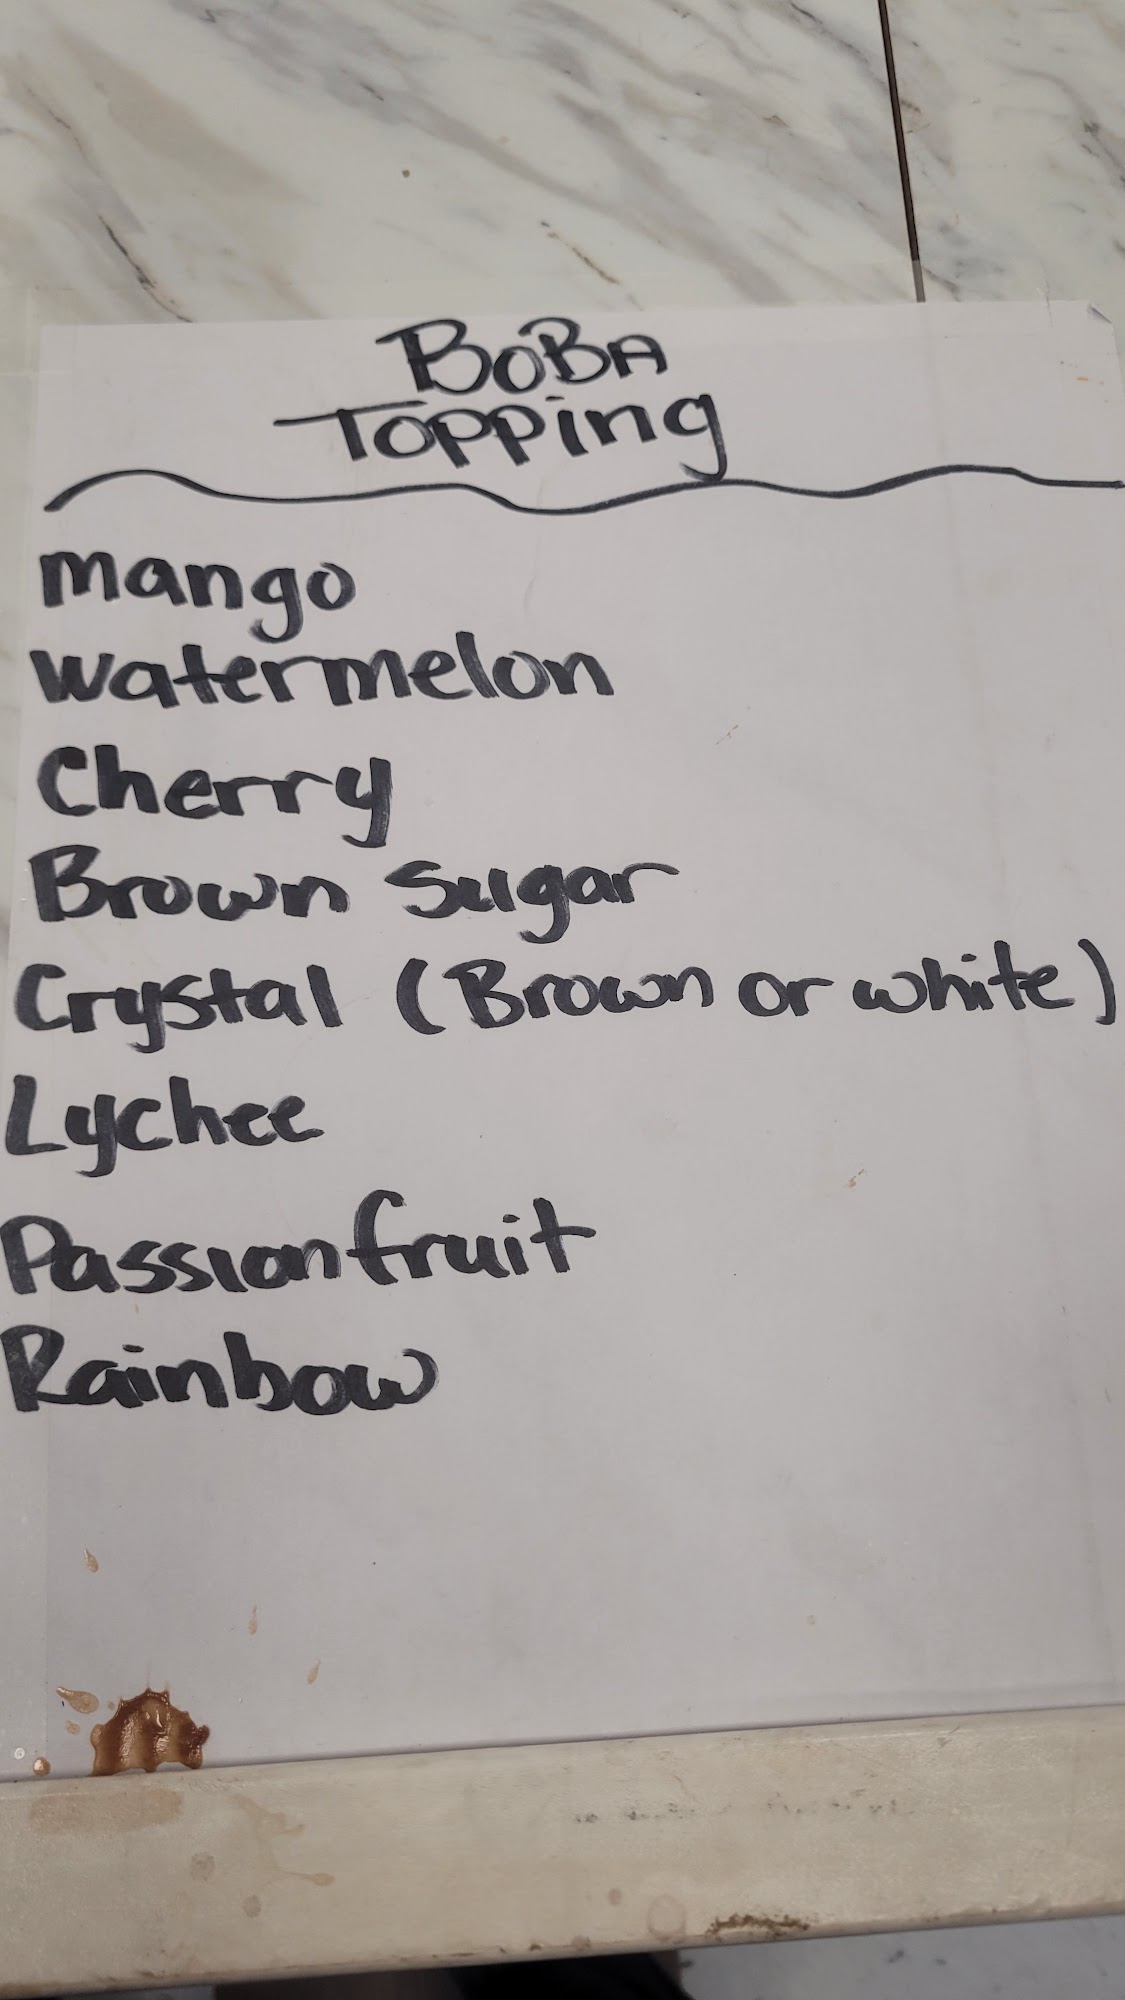 BOBA
Topping
mango
watermelon
Cherry
Brown Sugar
Crystal (Brown or white)
Lychee
Passionfruit
Rainbow